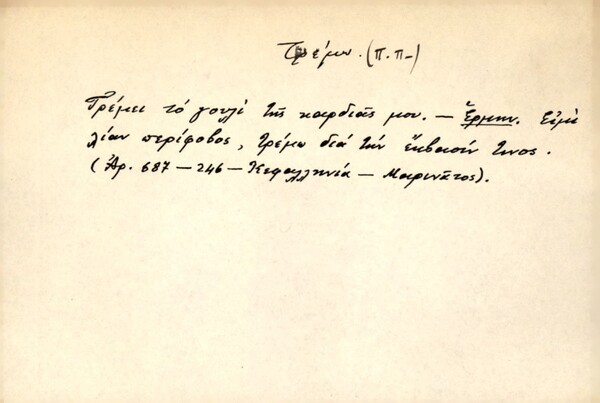 Τρέμω. (π.π-)
Τρέμει τό γουλί τῆς καρδιᾶς μου. – Ἑρμην. Εἶμαι
λίαν περίφοβος, τρέμω διά τήν ἔκβασίν τινος.
(Ἀρ. 687 – 246 – Κεφαλληνία – Μαρινᾶτος).